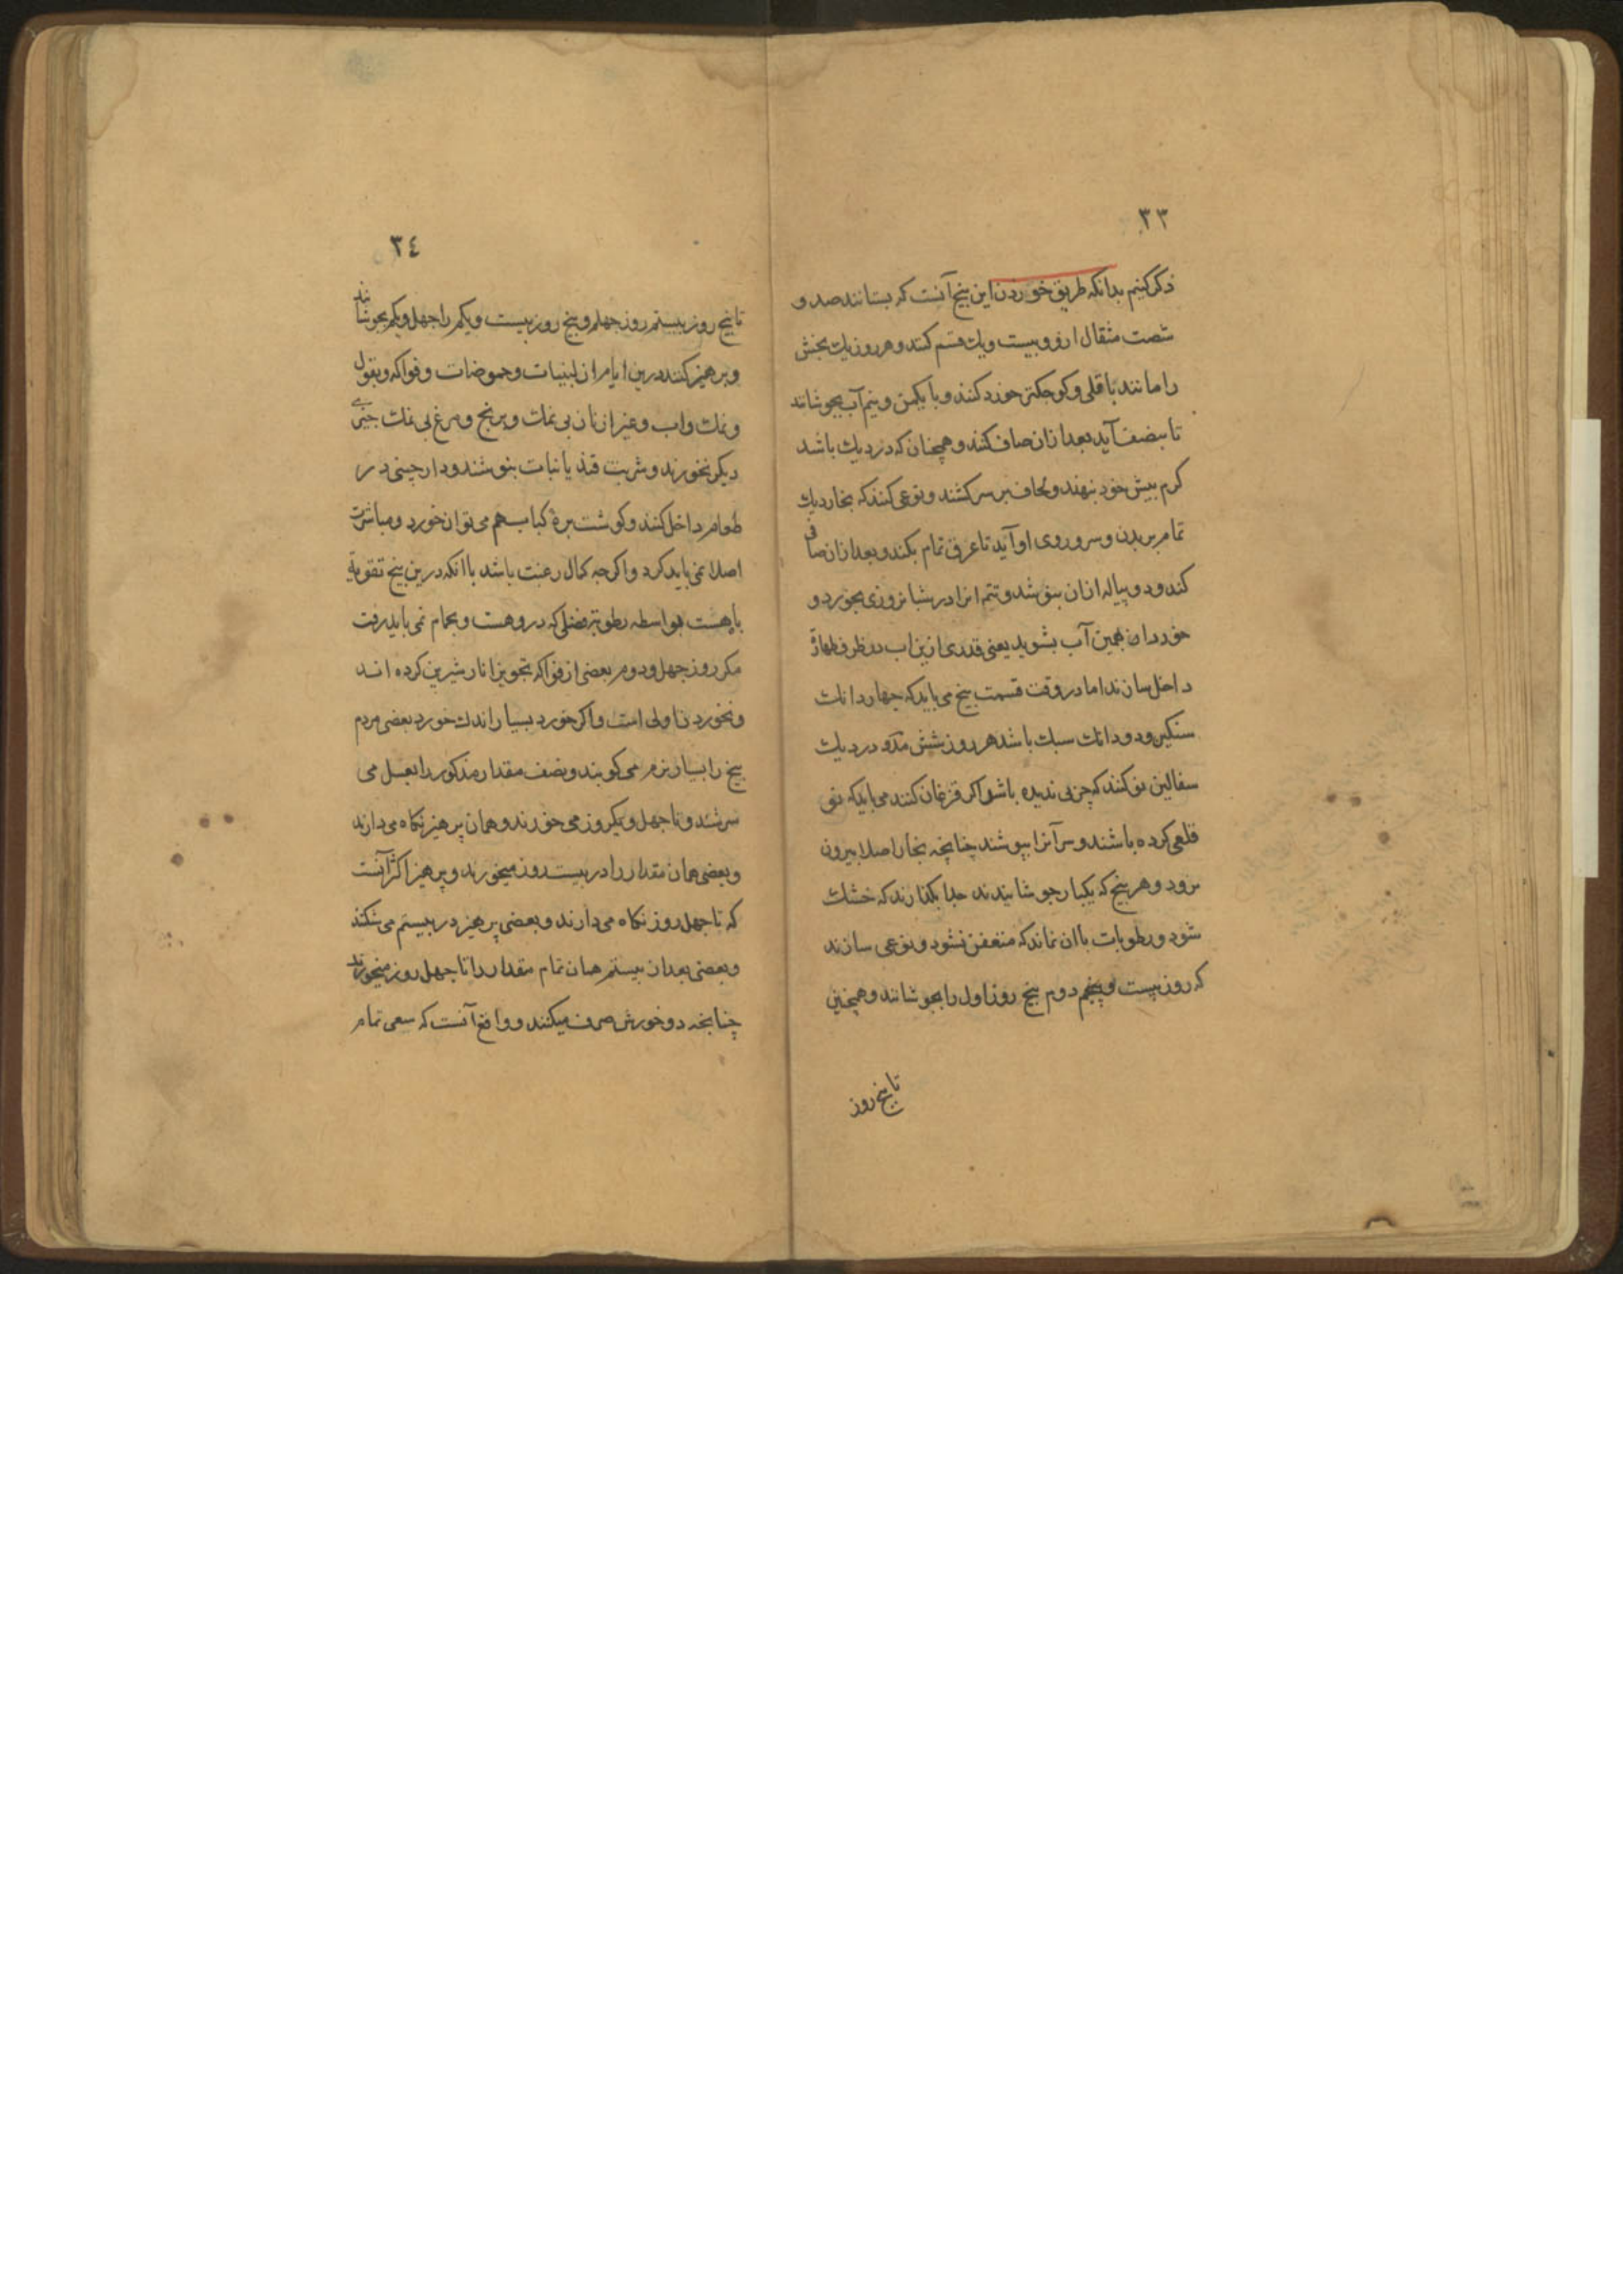 ٣٣
ذکر کنیم بدانکه طریق خوردن این بیخ آنست که بستانند صد و
شصت مثقال ازو و بیست و یک قسم کنند و هر روز یک بخش
را مانند باقلی و کوجکتر خورد کنند و با یکمن و نیم آب بجوشانند
تا بنصف آید بعد ازان صاف کنند و همچنان که در دیک باشد
کرم پیش خود بنهند و لحاف بر سر کشند و نوعی کنند که بخار دیک
تمام بر بدن و سر و روی او آید تا عرق تمام بکند و بعد ازان صافی
کند و دو پیاله ازان بنوشد و تتمه انرا در شبانروزی بخورد و
خوردان همین آب بشوید یعنی قدری ازین اب در ظرف طهارة
داخل سازند اما در وقت قسمت بیخ می باید که جهار دانک
سنکین و دو دانک سبک باشد هر روز شش مدو در دیک
سفالین نو کنند که چربی ندیده باشد و اکر قزغان کنند می باید که نو
قلعی کرده باشند و سر آنرا بپوشند چنانچه بخار اصلا بیرون
نرود و هر بیخ که یکبار جوشانیدند جدا بکذارند که خشک
شود و رطوبات باان نماند که متعفن نشود و نوعی سازند
که روز بیست و پنجم دوم بیخ روز اول را بجوشانند و همچنین
تا بیخ روز
٣٤
تا بیخ روز بیستم روز جهلم و بیخ روز بیست ویکم را جهل ویکم بجوشانند
و پرهیز کنند درین ایام از لبنیات و حموضات و فواکه و بقول
و نمک و اب و غیر از نان بی نمک و برنج و مرغ بی نمک جیزی
دیکر نخورند و شربت قند یا نبات بنوشند و دارجینی در
طعام داخل کنند و کوشت بره کباب هم می توان خورد و مباشرت
اصلا نمی باید کرد و اکرجه کمال رغبت باشد باانکه درین بیخ تقویة
باه هست بواسطه رطوبة فضلی که درو هست و بحمام نمی باید رفت
مکر روز جهل و دوم بعضی از فواکه تجویز انار شیرین کرده اند
و نخوردن اولی است و اکر خورد بسیار اندک خورد بعضی مردم
بیخ را بسیار نرم می کوبند و نصف مقدار مذکور را بعسل می
سرشند و تا جهل و یکروز می خورند و همان پرهیز نکاه می دارند
و بعضی همان مقدار را در بیست روز میخورند و پرهیز اکثر آنست
که تا جهل روز نکاه می دارند و بعضی پرهیز در بیستم می شکند
و بعضی بعد از بیستم همان تمام مقدار را تا جهل روز میخورند
چنانچه دو خورش صرف میکنند و واقع آنست که سعی تمام